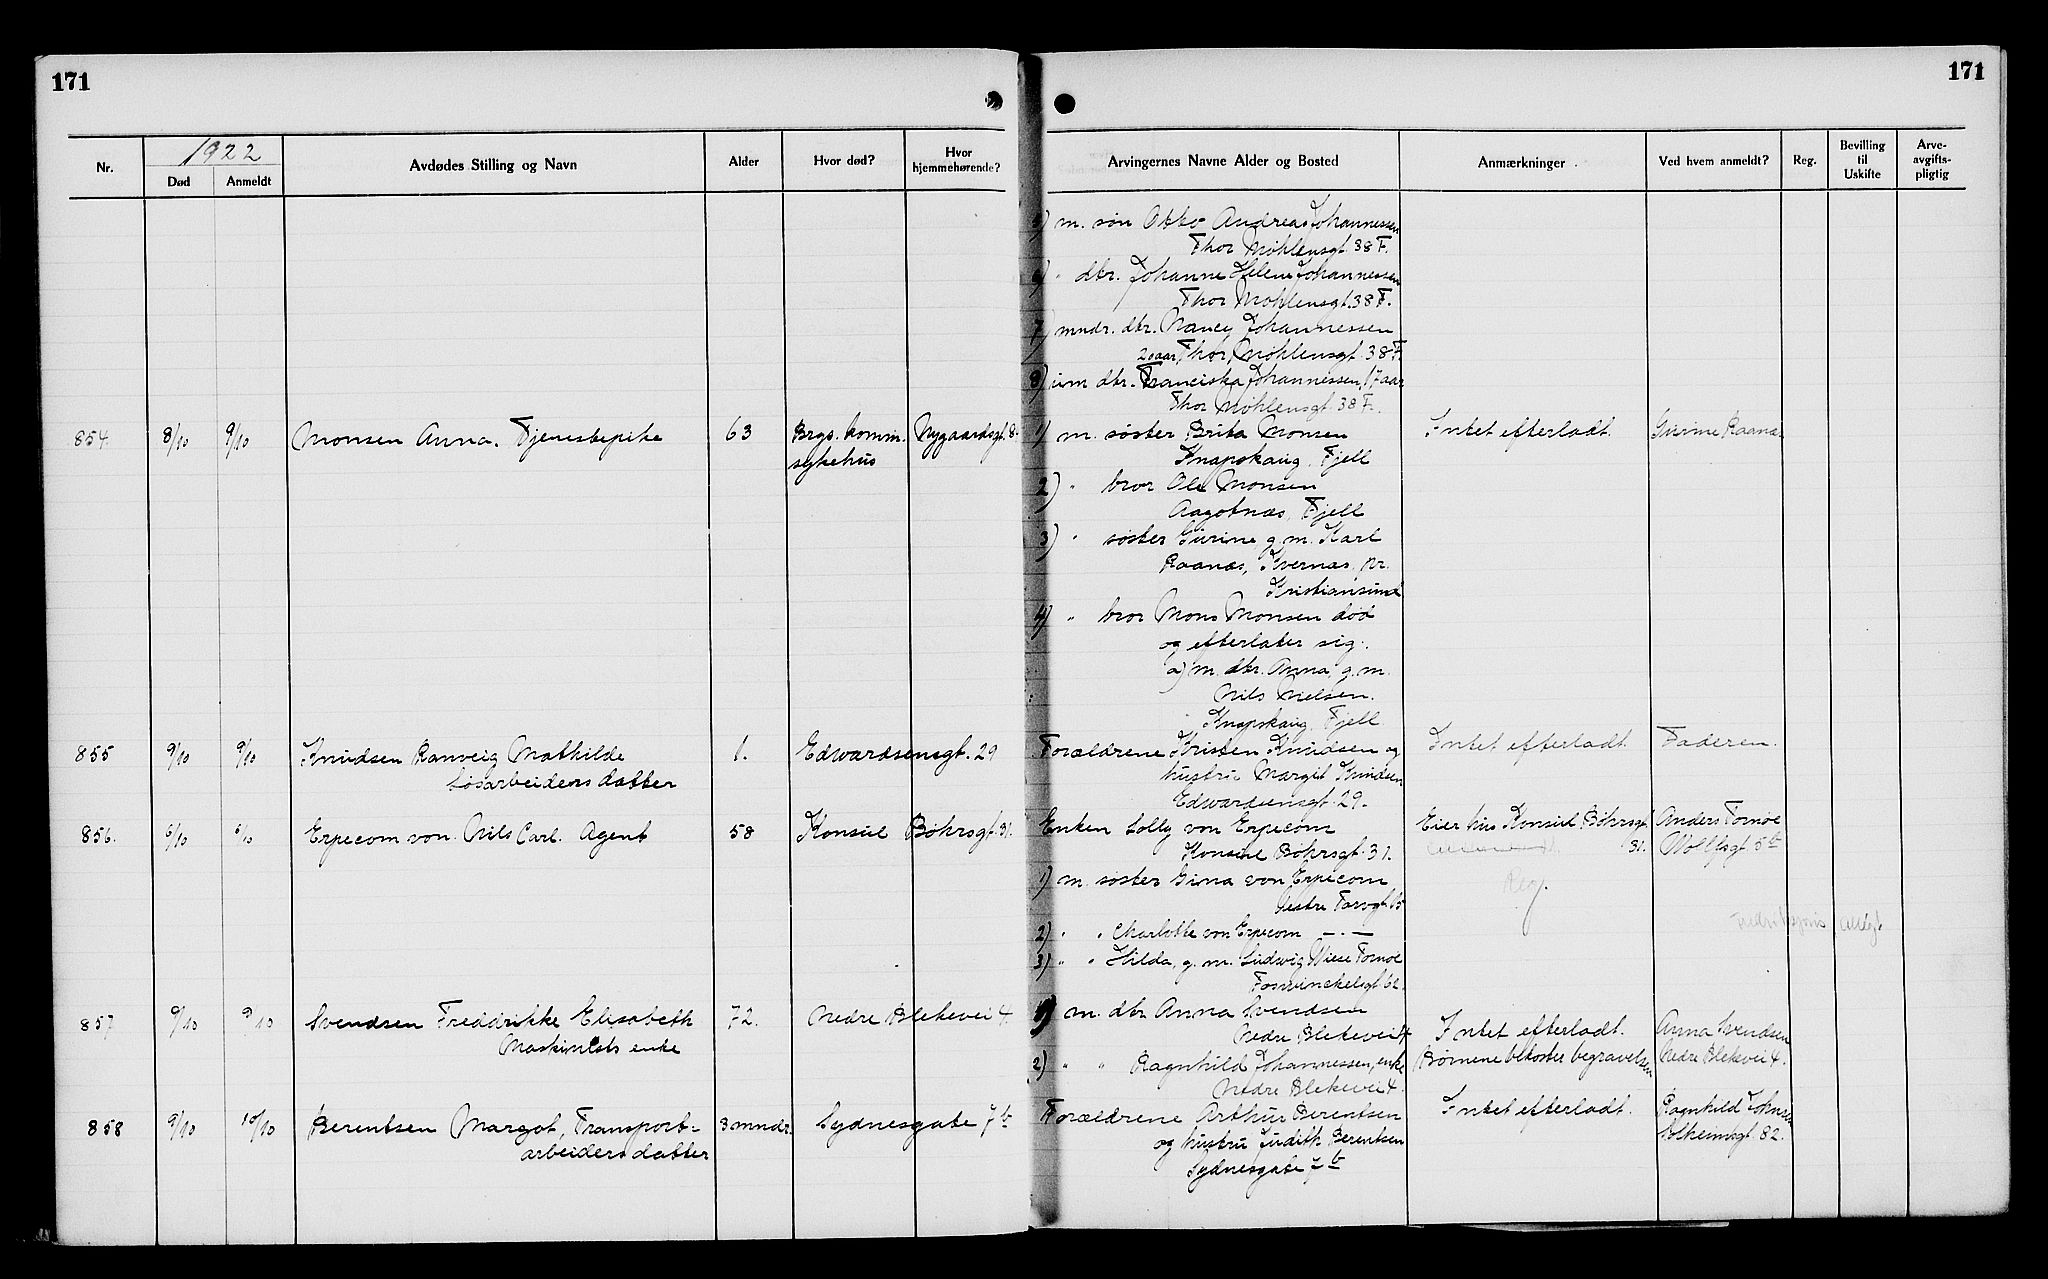 171
171
Nr.
1922
Død
Anmeldt
Avdødes Stilling og Navn
Alder
Hvor død?
Hvor
hjemmehørende?
Arvingernes Navne Alder og Bosted
Anmærkninger
Ved hvem anmeldt?
Reg.
Bevilling
til
Uskifte
Arve-
avgifts-
pligtig
5) m. søn Otto Andreas Johannessen
Thor Møhlensgt. 38 F.
6) " dtr. Johanne Helene Johannessen
Thor Møhlensgt. 38 F.
7) mndr. dtr. Nancy Johannessen
20 aar, Thor Møhlensgt. 38 F.
8) um dtr. Franciska Johannessen, 17 aar
Thor Møhlensgt. 38 F.
854. 8/10 9/10 Monsen Anna. Tjenestepike 63 Brgs. komm. Nygaardsgt. 8. 1) m. søster Brita Monsen Intet efterladt. Gurine Raanæs
sykehus Knapskaug, Fjell
2) " bror Ole Monsen
Aagotnæs, Fjell
3) " søster Gurine g. m. Karl
Raanæs, Kvernæs pr.
Kristiansund
4) " bror Mons Monsen død
og efterlater sig:
a) m. dtr. Anna, g. m.
Nils Nielsen.
Knapskaug, Fjell
855 9/10 9/10 Knudsen Ranveig Mathilde 1. Edwardsensgt. 29 Forældrene Kristen Knudsen og Intet efterladt. Faderen.
Løsarbeiders datter hustru Margit Knudsen
Edwardsensgt. 29.
856. 6/10 6/10 Erpecom von Nils Carl. Agent 58 Konsul Bøhrsgt. 31. Enken Lolly von Erpecom Eier hus Konsul Bøhrsgt. Anders Fornøe
Konsul Bøhrsgt. 31. 31. Wolffsgt 5b
1) m. søster Gina von Erpecom Reg.
2) " " Charlotte von Erpecom — " —
3) " " Hilda, g. m. Ludvig Wiese Fornøe
857 9/10 9/10 Svendsen Freddrikke Elisabeth 72. Nedre Blekevei 4. 1) m. dtr Anna Svendsen Intet efterladt. Anna Svendsen
Maskinists enke Nedre Blekevei 4 Børnene bekoster begravelsen Nedre Blekevei 4.
2) " " Ragnhild Johannessen, enke
Nedre Blekevei 4.
858 9/10 10/10 Berentsen Margot, Transport- 3 mndr. Sydnesgate 7b Forældrene Arthur Berentsen Intet efterladt. Ragnhild
arbeiders datter og hustru Judith Berentsen Solheimsgt. 82.
Sydnesgate 7b